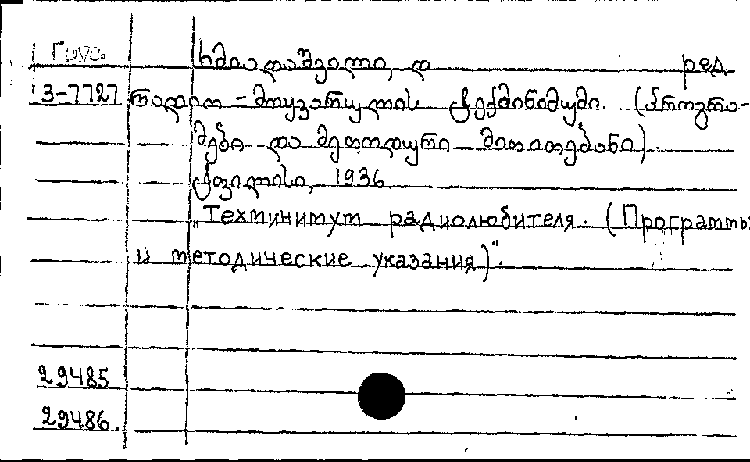 ред
3-7727 რადიო-მოყვარულის ტექმინიმუმი. (პროგრა-
მები და მეთოდური მითითებანი)
ტფილისი, 1936
„Техминимум радиолюбителя. (Программы
и методические указания)".
29485
29486.